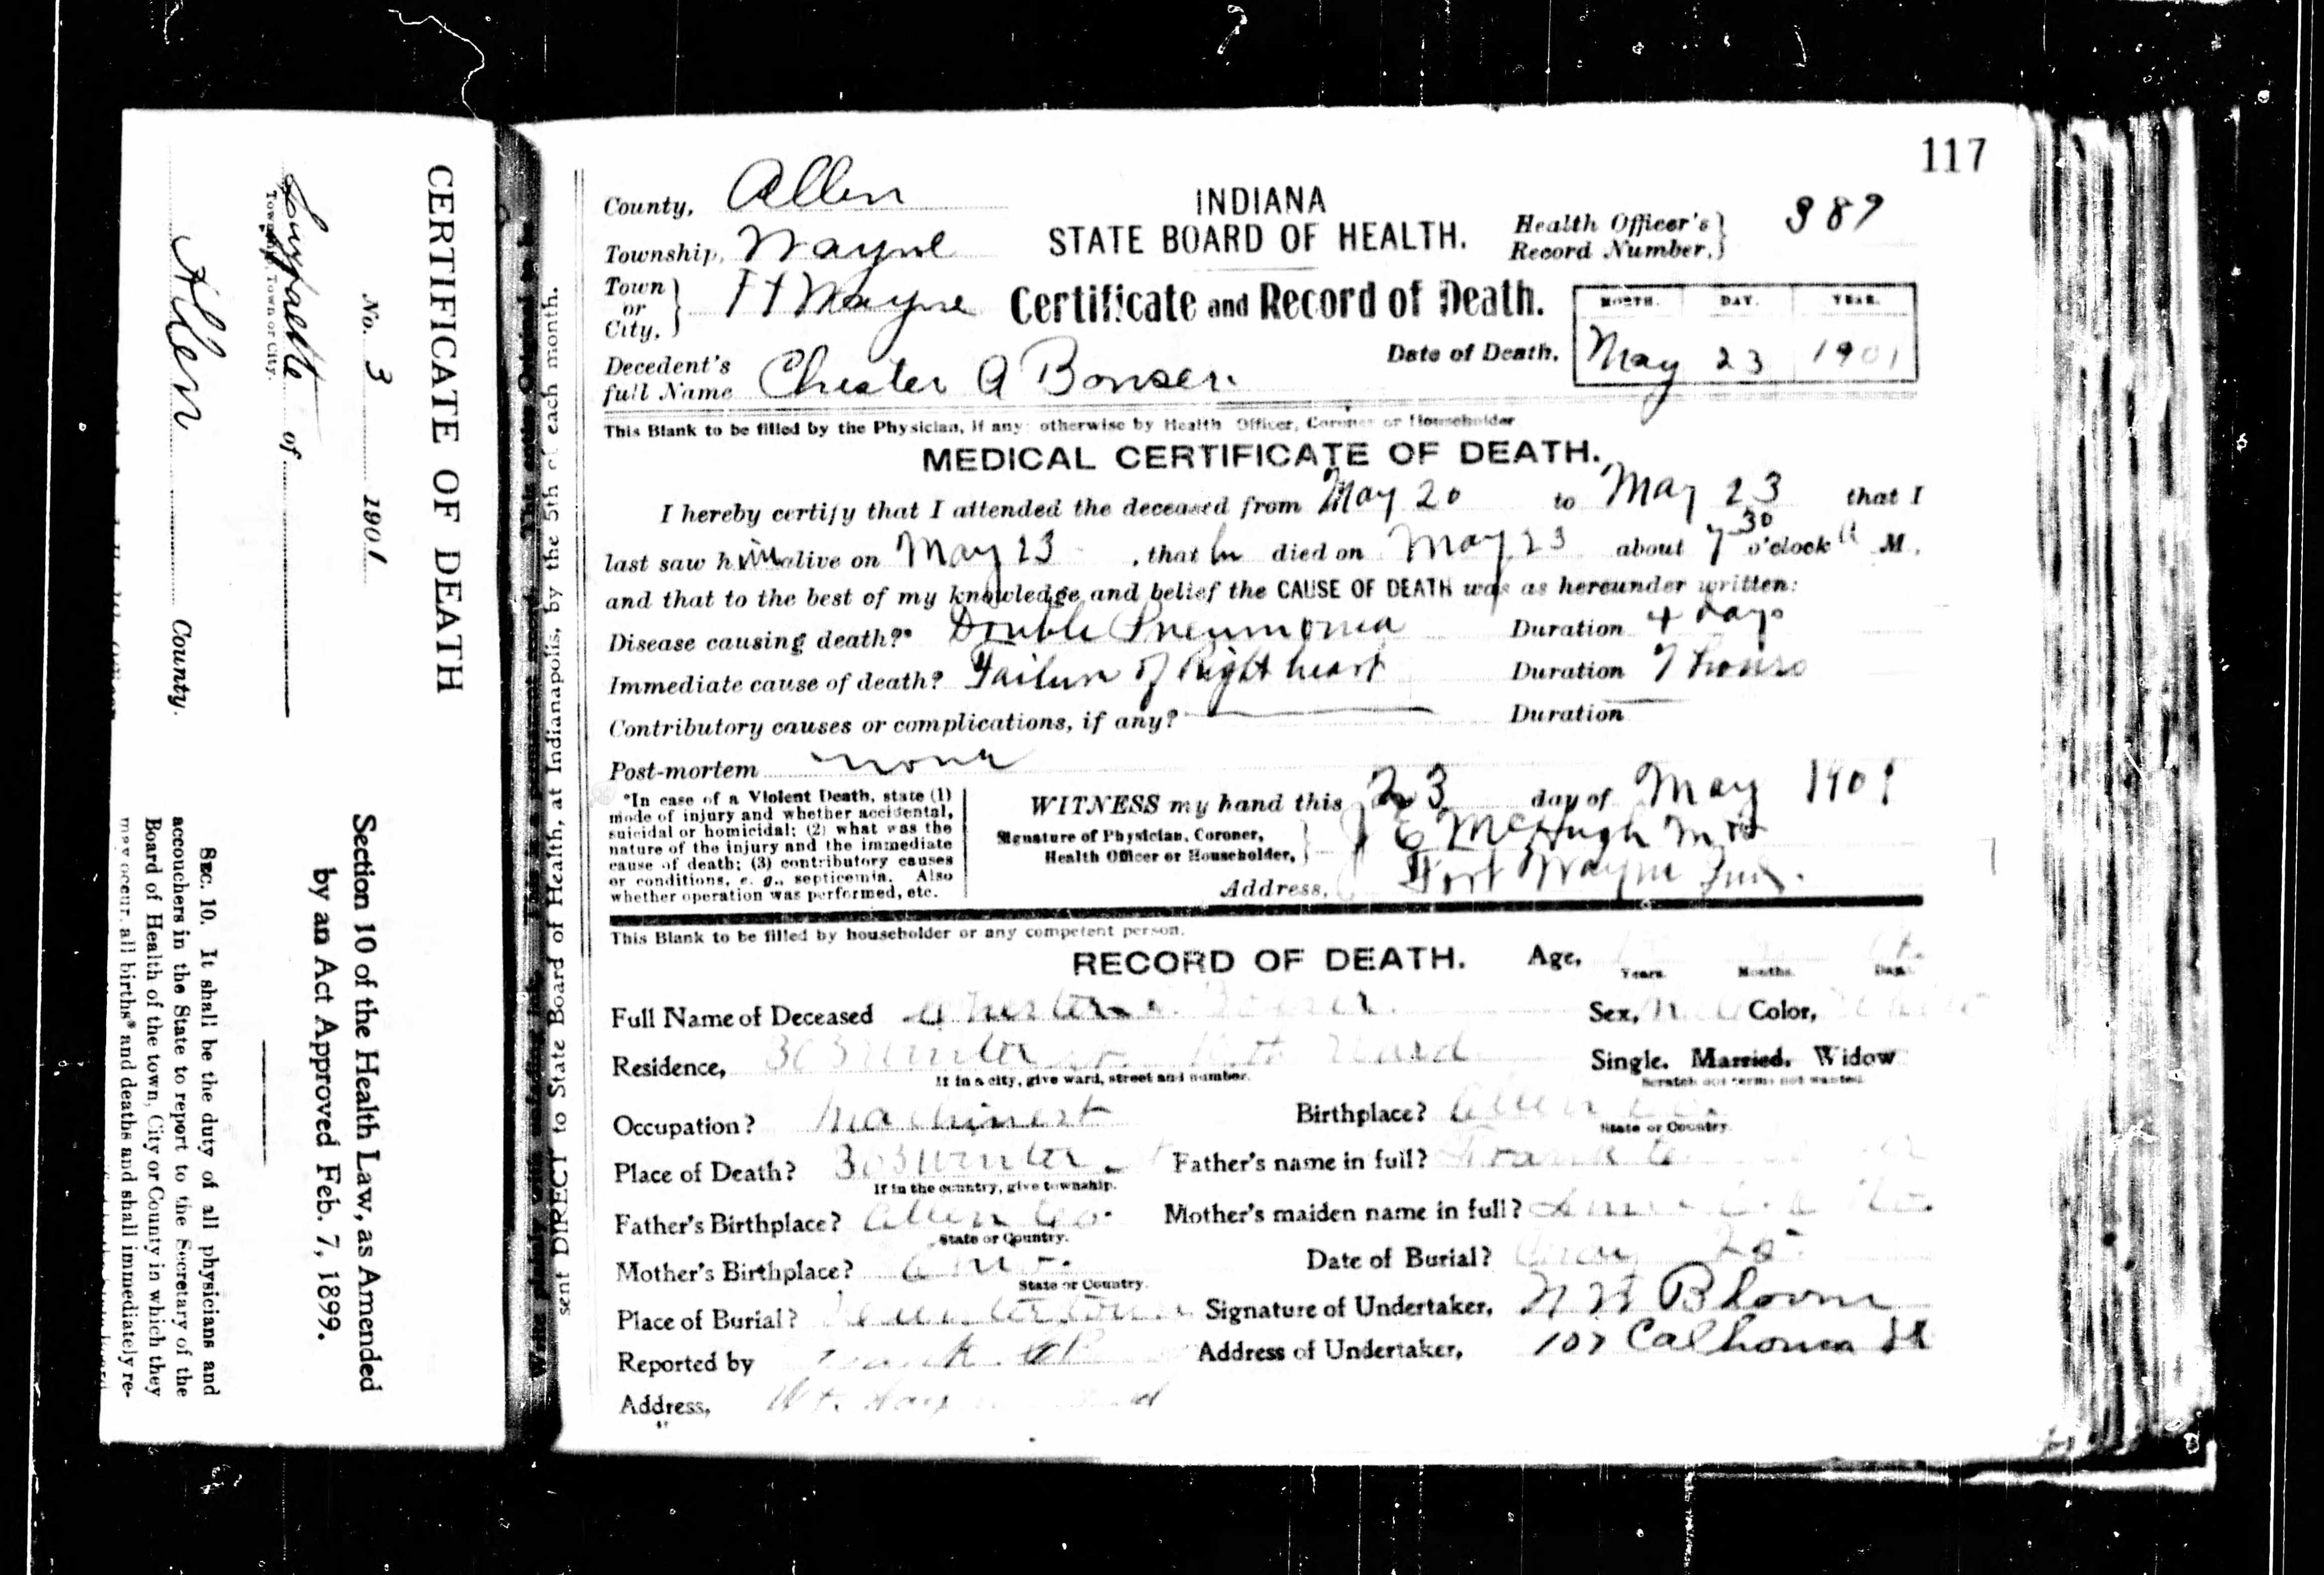 117
CERTIFICATE OF DEATH
No. 3 1901
of
Township, Town or City.
Allen County.
Section 10 of the Health Law, as Amended
by an Act Approved Feb. 7, 1899.
SEC. 10. It shall be the duty of all physicians and
accouchers in the State to report to the Secretary of the
Board of Health of the town, City or County in which they
may occur, all births* and deaths and shall immediately re-
sent DIRECT to State Board of Health, at Indianapolis, by the 5th of each month.
County, Allen
INDIANA
STATE BOARD OF HEALTH.
Health Officer's Record Number, 389
Township, Wayne
Town or City, Ft Wayne
Certificate and Record of Death.
MONTH. DAY. YEAR.
Date of Death, May 23 1901
Decedent's full Name Chester A Bonser
This Blank to be filled by the Physician, if any; otherwise by Health Officer, Coroner or Householder
MEDICAL CERTIFICATE OF DEATH.
I hereby certify that I attended the deceased from May 20 to May 23 that I
last saw him alive on May 23, that he died on May 23 about 7 30 o'clock a M,
and that to the best of my knowledge and belief the CAUSE OF DEATH was as hereunder written:
Disease causing death?* Double Pneumonia Duration 4 days
Immediate cause of death? Failure of Right heart Duration 7 hours
Contributory causes or complications, if any? Duration
Post-mortem none
*In case of a Violent Death, state (1)
mode of injury and whether accidental,
suicidal or homicidal; (2) what was the
nature of the injury and the immediate
cause of death; (3) contributory causes
or conditions, e. g., septicemia. Also
whether operation was performed, etc.
WITNESS my hand this 23 day of May 1901
Signature of Physician, Coroner,
Health Officer or Householder, J E McHugh M D
Address, Fort Wayne Ind.
This Blank to be filled by householder or any competent person.
RECORD OF DEATH. Age,
Years Months Days
Full Name of Deceased Chester Sex, Color,
Residence, 303 Winter Ward
If in a city, give ward, street and number.
Single. Married. Widow
Scratch out terms not wanted.
Occupation? Machinest Birthplace? Allen Co.
State or Country.
Place of Death? 303 Winter Father's name in full? Frank
If in the country, give township.
Father's Birthplace? Allen Co. Mother's maiden name in full?
State or Country.
Mother's Birthplace? Date of Burial? May
State or Country.
Place of Burial? Signature of Undertaker,
Reported by Address of Undertaker, 107 Calhoun St
Address,